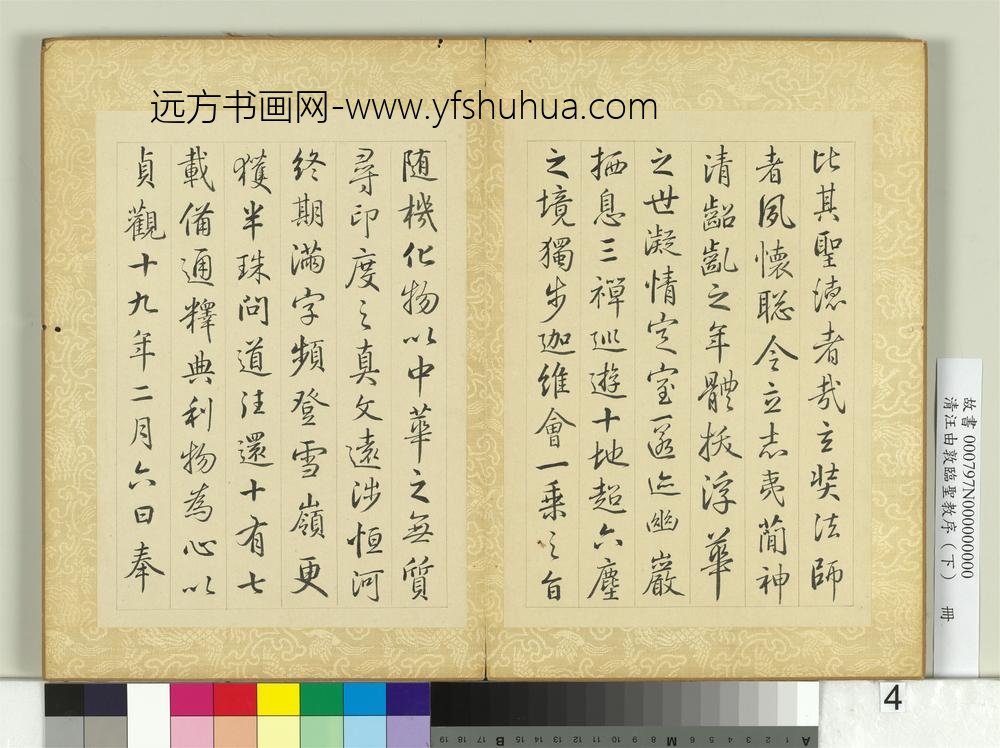 远方书画网-www.yfshuhua.com
比其聖德者哉玄奘法師
者夙懷聡令立志夷簡神
清齠齔之年體拔浮華
之世凝情定室匿迹幽巖
栖息三禪巡遊十地超六塵
之境獨步迦維會一乘之旨
随機化物以中華之無質
尋印度之真文遠涉恒河
終期滿字頻登雪嶺更
獲半珠問道往還十有七
載備通釋典利物為心以
貞觀十九年二月六日奉
故書 000797N000000000
清汪由敦臨聖教序（下） 冊
4
A 1 2 3 4 5 6 7 8 M 9 10 11 12 13 14 15 B 16 17 18 19